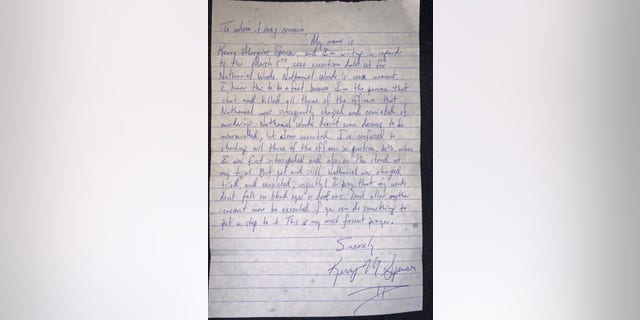 To whom it may concern,
My name is
Kerry Marquise Spencer, and I'm writing in regards
to the March 5TH 2020 execution date set for
Nathaniel Woods. Nathaniel Woods is 100% innocent.
I know this to be a fact because I'm the person that
shot and killed all three of the officers that
Nathaniel was subsequently charged and convicted of
murdering. Nathaniel Woods doesn't even deserve to be
incarcerated, let alone executed. I've confessed to
shooting all three of the officers in question, both, when
I was first interrogated and also on the stand at
my trial. But yet and still, Nathaniel was charged
tried, and convicted, unjustly! I pray that my words
don't fall on blind eyes or deaf ears. Don't allow another
innocent man be executed if you can do something to
put a stop to it. This is my most fervent prayer.
Sincerely
Kerry M Spencer